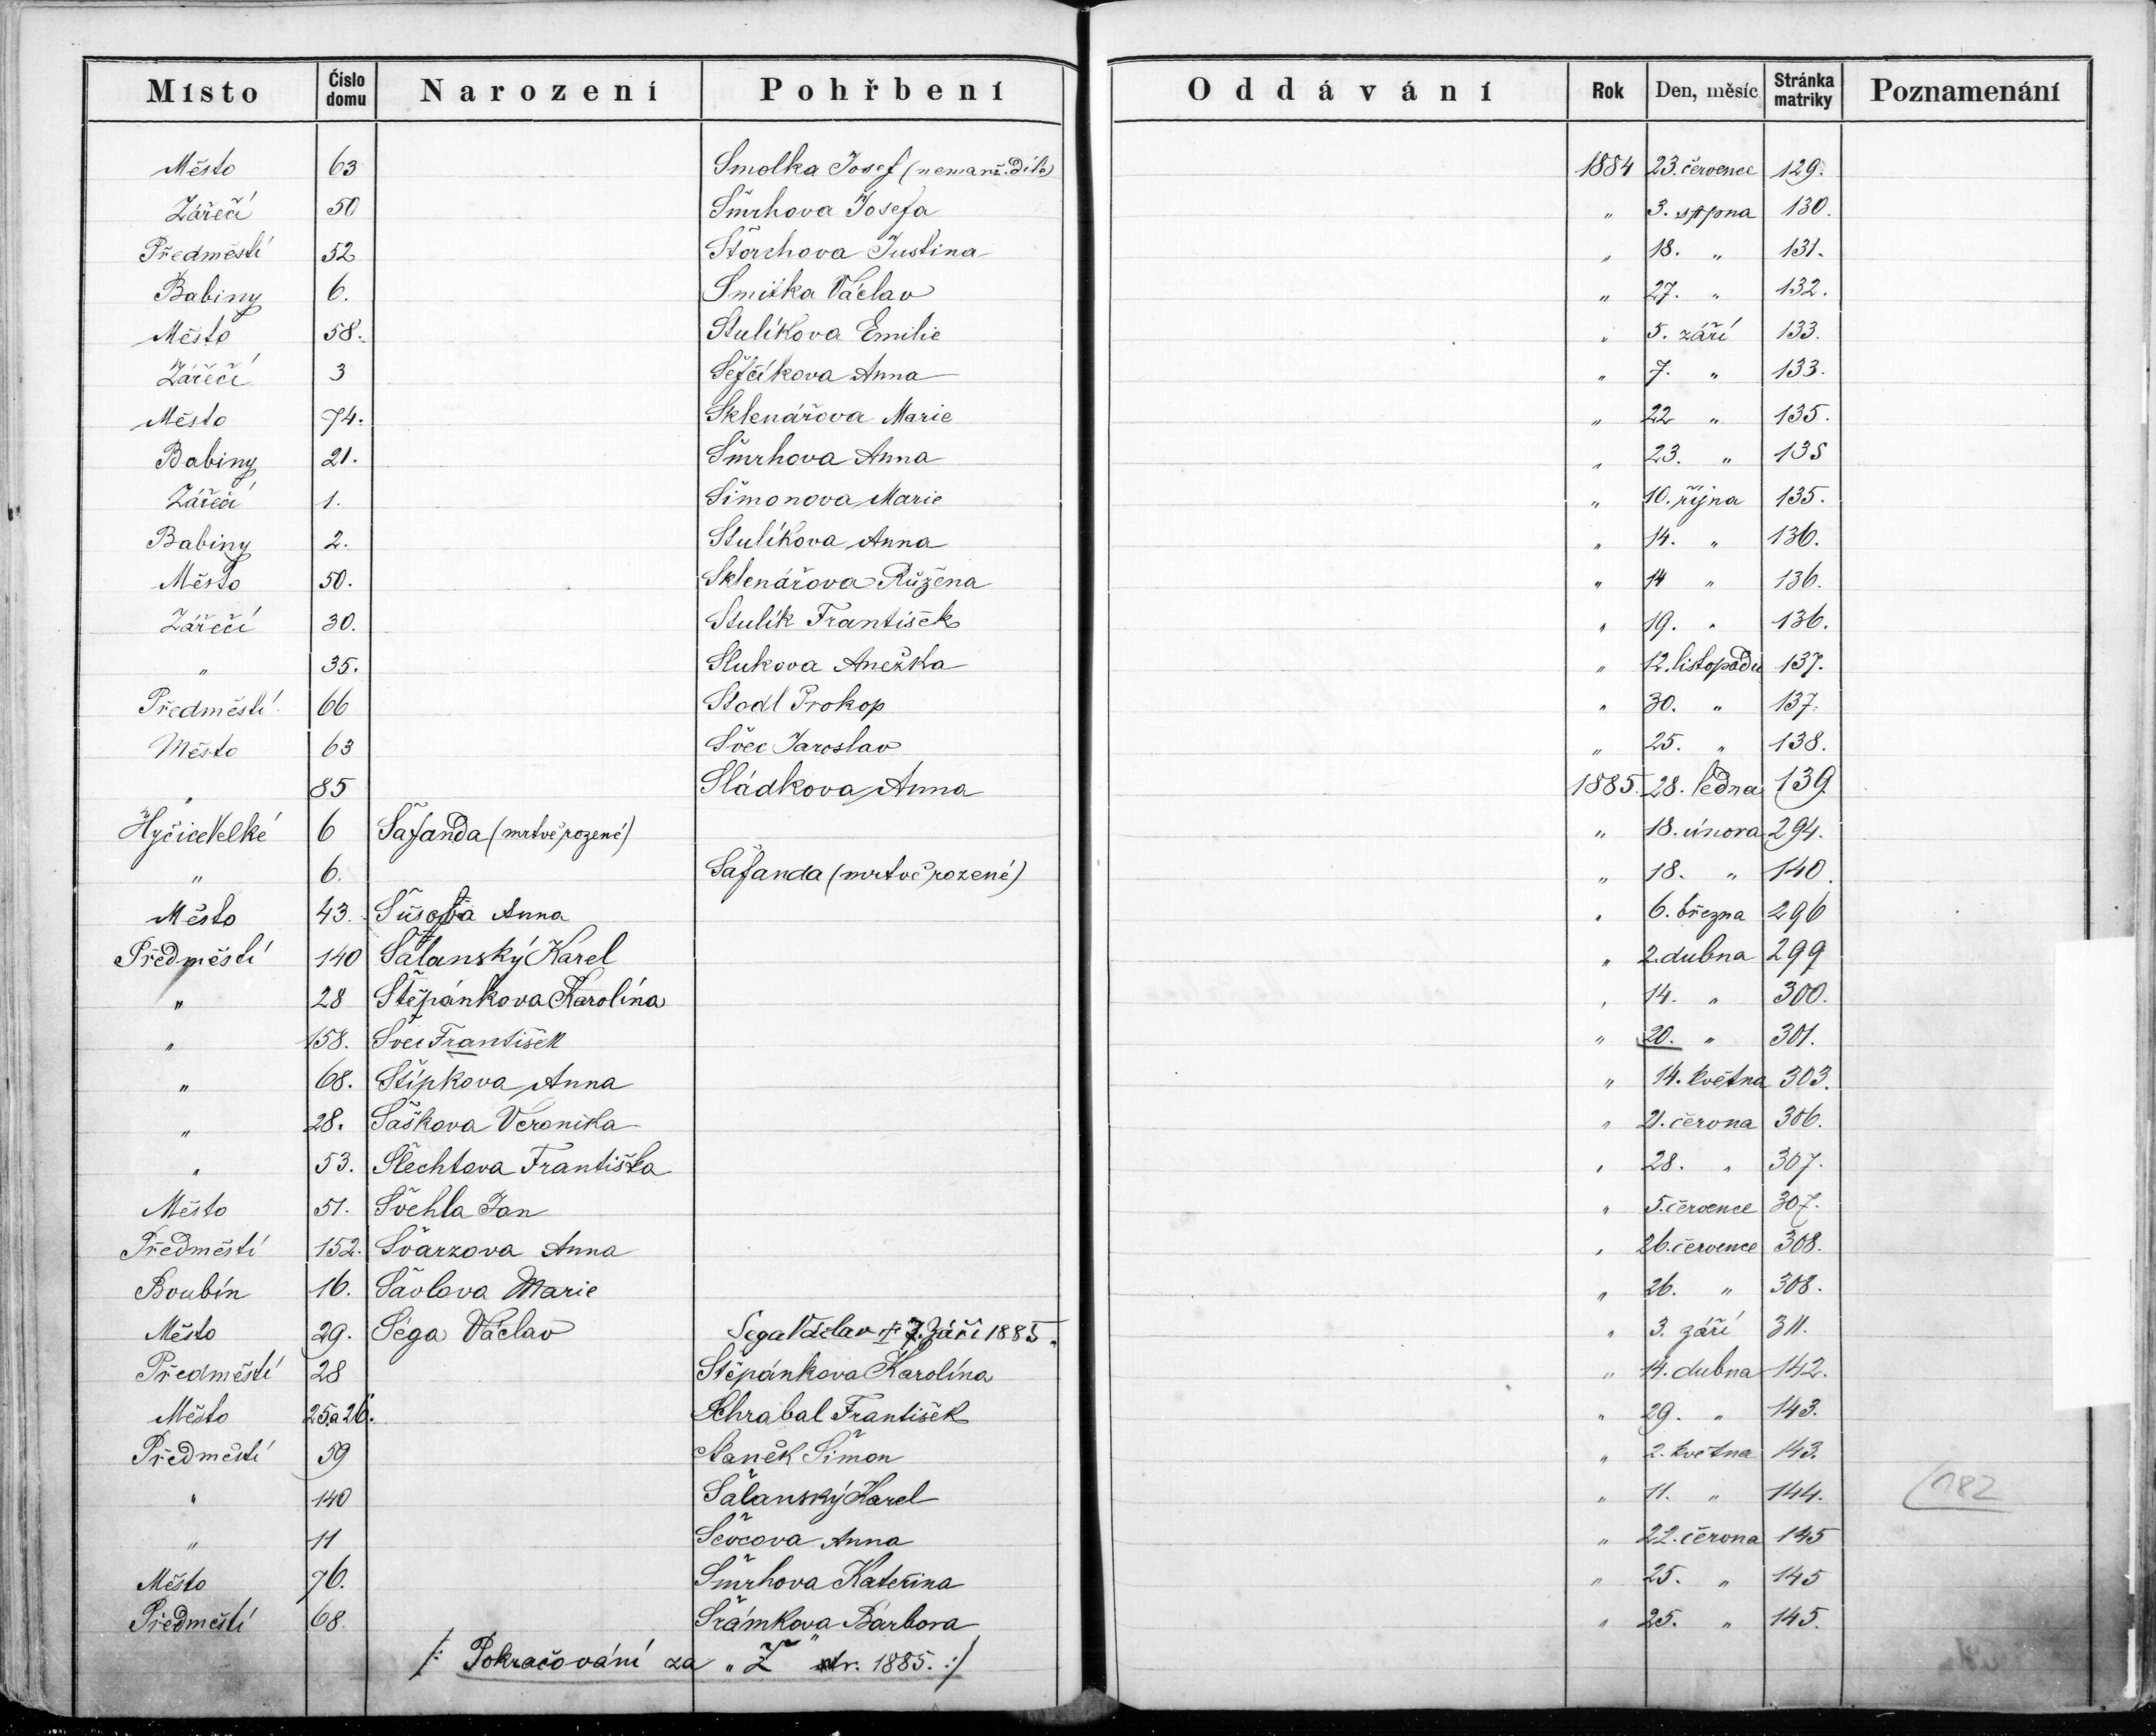 Místo Číslo domu Narození Pohřbení Oddávání Rok Den, měsíc Stránka matriky Poznamenání
Město 63 Smolka Josef (nemanž. dítě) 1884 23. července 129.
Zářečí 50 Šmrhova Josefa " 3. srpna 130.
Předměstí 52 Štorchova Justina " 18. " 131.
Babiny 6. Smitka Václav " 27. " 132.
Město 58. Stulíkova Emilie " 5. září 133.
Zářečí 3 Šefčíkova Anna " 7. " 133.
Město 74. Sklenářova Marie " 22 " 135.
Babiny 21. Šmrhova Anna " 23. " 135
Zářečí 1. Šimonova Marie " 10. října 135.
Babiny 2. Stulíkova Anna " 14. " 136.
Město 50. Sklenářova Růžena " 14 " 136.
Zářečí 30. Stulík František " 19. " 136.
" 35. Slukova Anežka " 12. listopadu 137.
Předměstí 66 Stodl Prokop " 30. " 137.
Město 63 Švec Jaroslav " 25. " 138.
" 85 Sládkova Anna 1885. 28. ledna 139
Hyčice Velké 6 Šafanda (mrtvě rozené) " 18. února 294.
" 6. Šafanda (mrtvě rozené) " 18. " 140.
Město 43. Anna " 6. března 296
Předměstí 140 Šalanský Karel " 2. dubna 299
" 28 Štěpánkova Karolína " 14. " 300.
" 158. Švec František " 20. " 301.
" 68. Štípkova Anna " 14. května 303.
" 28. Šaškova Veronika " 21. června 306.
" 53. Šlechtova Františka " 28. " 307.
Město 51. Švehla Jan " 5. července 307.
Předměstí 152. Švarzova Anna " 26. července 308.
Boubín 16. Šavlova Marie " 26. " 308.
Město 29. Šéga Václav Šega Václav † 7. září 1885. " 3. září 311.
Předměstí 28 Štěpánkova Karolína " 14. dubna 142.
Město 25.a 26. Schrabal František " 29. " 143.
Předměstí 59 Staněk Šimon " 2. května 143.
" 140 Šalanský Karel " 11. " 144.
182
" 11 Ševcova Anna " 22. června 145
Město 76. Šmrhova Kateřina " 25. " 145
Předměstí 68. Šrámkova Barbora " 25. " 145.
/: Pokračování za „Ž" str. 1885. :/